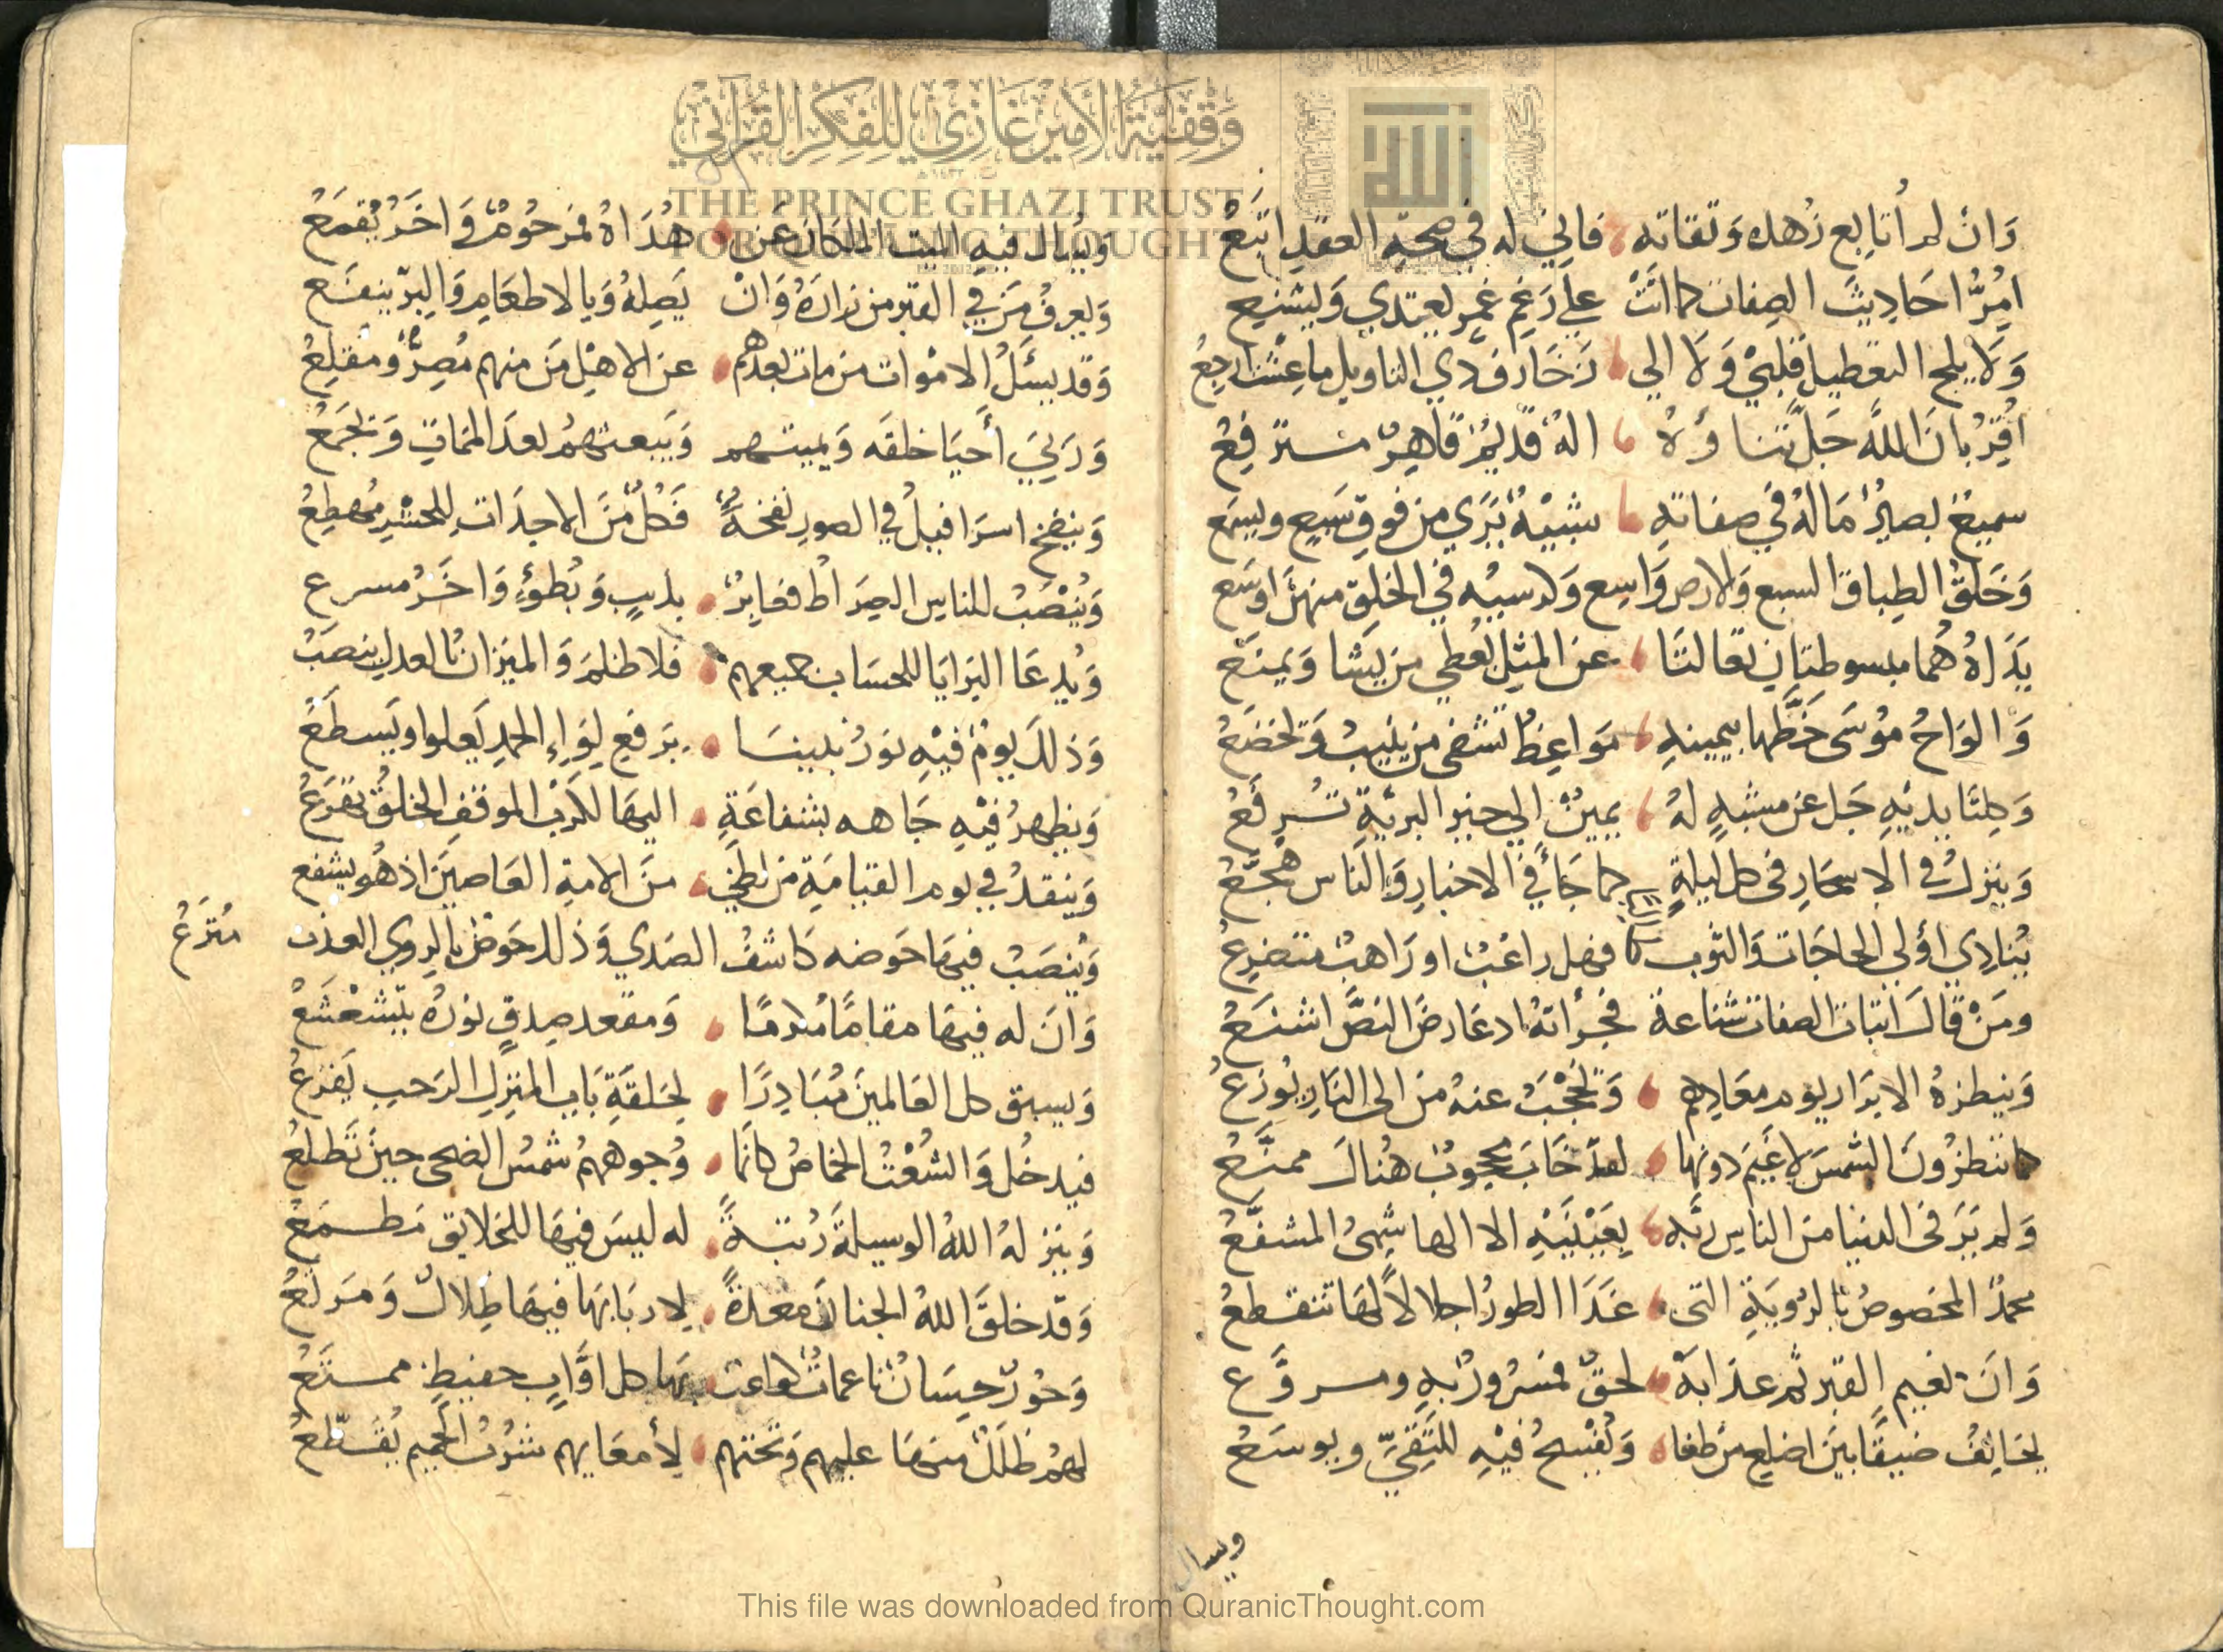 وَقْفِيَّةُ الأَمِيْرِ غَازِي لِلفِكْرِ القُرْآنِيّ
THE PRINCE GHAZI TRUST
FOR QURANIC THOUGHT
الله
وَان لم أُتابِع زُهده وَتقاته فاني له في صحةِ العقدِ اتبَعُ
امِرُّ احَاديثَ الصِفات كما اتَتْ على رَغمِ غمرٍ يعتدي وَيشنع
وَلا يلج التعطيل قلبيْ وَلا الي زخَارف ذي التاويل ما عشت ارجعُ
اقِرُ بانَ اللهَ جَلّ ثناؤهُ الهٌ قديمٌ قاهِرٌ مسترفعُ
سميعٌ بصيرٌ مَا لهُ في صفاتهِ شبيْهٌ يَرَي من فوقِ سَبعٍ ويسمَع
وَخَلقُ الطِباق السبع والارض وَاسع وكرسيه في الخلقِ منهنَ اوسَع
يَدَاهُ هُما مبسوطتانِ تعَالتَا عن المثلِ يُعطي من يشا وَيمنَع
وَالواحُ مُوْسَى خَطّها بيمينهِ مَواعِظ تشفى من ينيبُ وَتخضَعُ
وَكلتَا يديْهِ جَل عن مشبهٍ لهُ يمينٌ الي خيرِ البريّةِ تُسرِعُ
وَينزلُ في الاسحَارِ في كل ليلةٍ كما جَا في الاخبارِ وَالناس هُجَّعُ
يُنادِي اولي الحاجَات وَالتوب فهل راغبٌ او رَاهبٌ متضرِعُ
ومَنْ قالَ اثبات الصفات شناعة فجرأتهُ اذ عَارضَ النصَّ اشنَعُ
وَينظرهُ الابرَار يوم معَادهم وَيُحْجَبُ عنهُ من الى النارِ يُوزَعُ
كما ينظرُونَ الشمسَ لا غيمَ دونها لقد خَابَ محجوبٌ هُنالَ ممنَّعُ
وَلم يَرَ في الدنيا من الناسِ ربَّه بِعَيْنَيْهِ الا الهاشميُ المشفَّعُ
محمدٌ المخصوصُ بالرُويَةِ التى غدَا الطورُ اجلالاً لهَا يتقطعُ
وَانَ نعيم القبر ثم عذابَهُ لحقٌ فمسرُورٌ بهِ ومروَّع
يخالِفُ ضيقًا بينَ اضلعِ من طغا وَيُفْسحُ فيْهِ للتَقيّ ويوسَعُ
ويسال
وَيُسال فيهِ الميت الملكان عَن هُدَاهُ فمَرحُومٌ وَاخَرُ يُقمَعُ
وَيعرفُ مَن في القبر من زارَهُ وَانْ يَصِلهُ وَبالاطعَامِ وَالبرّ ينفَع
وَقد يسئَلُ الامْوات من مات بعدهم عن الاهْلِ مَن منهم مُصِرٌّ وَمقلِعُ
وَرَبيَ أحيَا خلقَه وَيميتهم وَيبعثهمُ بعدَ الممَاتِ وَيجمَعُ
وَينفخ اسرَافيلُ في الصورِ نفخةً فكلٌ مِّنَ الاجدَاثِ للحشرِ مُهطِعُ
وَيُنْصَبُ للناسِ الصِرَاط ففايزٌ بدبيبٍ وَبُطوءٍ وَاخَرُ مسرع
وَيُدعَا البرَايَا للحسَاب جميعهم فلا ظلمَ وَالميْزانُ بالعدلِ ينصَبُ
وَذلكَ يومٌ فيْهِ نورُ نبينَا برَفعِ لِوَاءِ الحمدِ يَعلوا ويَسطَعُ
وَيظهرُ فيْهِ جَاهه بشفاعَةٍ اليهَا لكَربِ الموقفِ الخلقُ تفزَعُ
وَينقذُ في يوم القيامَةِ من لظيً منَ الامةِ العَاصيَنَ اذ هُو يشفع
وَيُنصَبُ فيهَا حَوضه كاشفُ الصَدي وَذلك حَوضٌ بالروِي العذب
مُترَعُ
وَانَ له فيهَا مقامًا مُكرمًا وَمقعد صِدقٍ نورُهُ يتشَعْشَعُ
وَيسبق كل العَالمينَ مُبَادِرًا لِحَلقَةِ بَابِ المنزِلِ الرَحبِ يَقرَعُ
فيدخُل وَالشُعْثُ الخِمَاصُ كانمَا وُجوههمُ شمسُ الضحى حينَ تَطلعُ
وَينزلهُ اللهُ الوسيلةَ رُتبةً له ليسَ فيهَا للخلايق مَطمَعُ
وَقد خلقَ اللهُ الجنانَ معدةً لاربَابهَا فيهَا ظِلالٌ وَمَرتعُ
وَحُورٌ حِسَانٌ ناعماتٌ كواعبٌ بهَا كل اوَّابٍ حفيظٍ ممتَّعُ
لهُم ظُلَلٌ منهَا عليهم وَتحتهم لأمعَايهم شرُبُ الحميم يُقطّعُ
This file was downloaded from QuranicThought.com